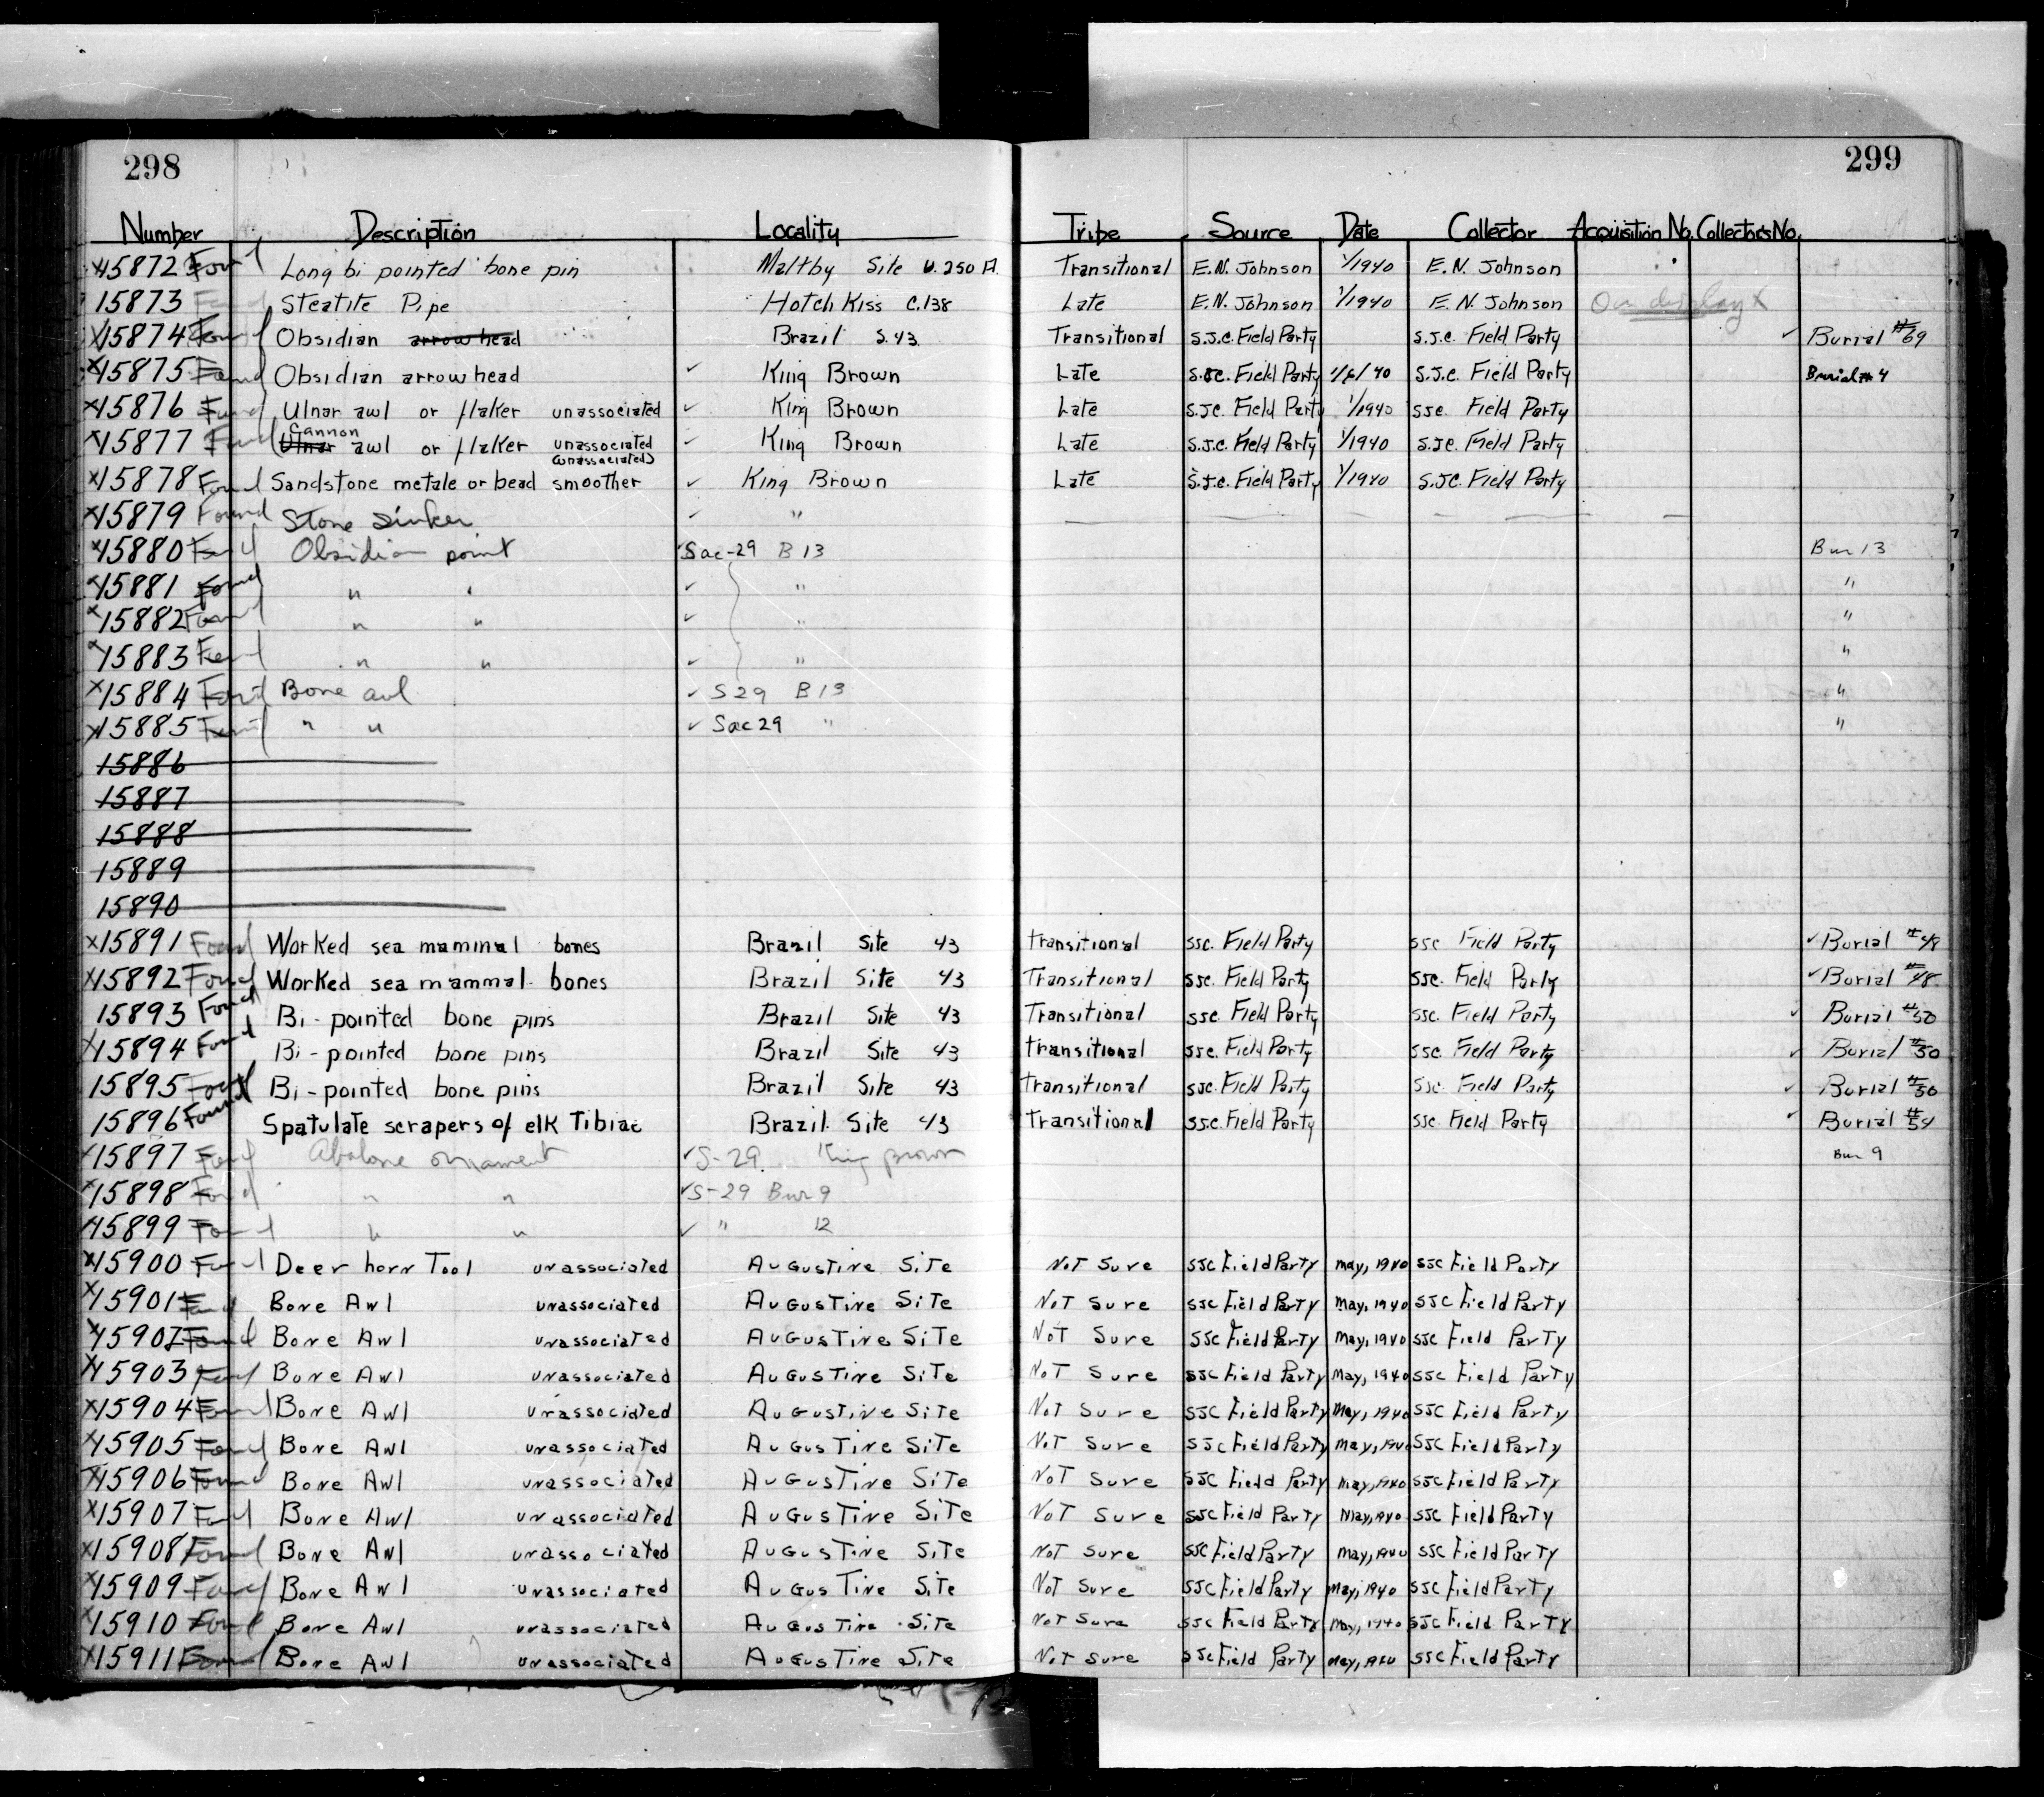 298
299
Number Description Locality Tribe Source Date Collector Acquisition No. Collectors No.
x15872 Found Long bi pointed bone pin Maltby Site Transitional E.N. Johnson 1/1940 E.N. Johnson
15873 Found Steatite Pipe Hotch Kiss C.138 Late E.N. Johnson 1/1940 E.N. Johnson On display x
x15874 Found Obsidian arrowhead Brazil S.43 Transitional S.J.C. Field Party S.J.C. Field Party ✓ Burial #69
x15875 Found Obsidian arrowhead ✓ King Brown Late S.J.C. Field Party 1/6/40 S.J.C. Field Party Burial #4
x15876 Found Ulnar awl or flaker unassociated ✓ King Brown Late S.J.C. Field Party 1/1940 SJC. Field Party
x15877 Found Ulnar Cannon awl or flaker unassociated ✓ King Brown Late S.J.C. Field Party 1/1940 S.JC. Field Party
(unassociated)
x15878 Found Sandstone metale or bead smoother ✓ King Brown Late S.J.C. Field Party 1/1940 S.JC. Field Party
x15879 Found Stone Sinker ✓ "
x15880 Found Obsidian point ✓ Sac-29 B 13 Bur 13
x15881 Found " " ✓ " "
x15882 Found " " ✓ " "
x15883 Found " " ✓ " "
x15884 Found Bone awl ✓ S 29 B 13 "
x15885 Found " " ✓ Sac 29 " "
15886
15887
15888
15889
15890
x15891 Found Worked sea mammal bones Brazil Site 43 Transitional SJC. Field Party SJC Field Party ✓ Burial #48
x15892 Found Worked sea mammal bones Brazil Site 43 Transitional SJC. Field Party SJC. Field Party ✓ Burial #48
15893 Found Bi-pointed bone pins Brazil Site 43 Transitional SJC. Field Party SJC. Field Party ✓ Burial #50
x15894 Found Bi-pointed bone pins Brazil Site 43 Transitional SJC. Field Party SJC. Field Party ✓ Burial #50
15895 Found Bi-pointed bone pins Brazil Site 43 Transitional SJC. Field Party SJC. Field Party ✓ Burial #50
15896 Found Spatulate scrapers of elk Tibiae Brazil Site 43 Transitional SJC. Field Party SJC. Field Party ✓ Burial #54
x15897 Found Abalone ornament ✓ S-29 King Brown Bur 9
x15898 Found " " ✓ S-29 Bur 9
x15899 Found " " ✓ " 12
x15900 Found Deer horn Tool unassociated Augustine Site Not Sure SJC Field Party May, 1940 SJC Field Party
x15901 Found Bone Awl unassociated Augustine Site Not Sure SJC Field Party May, 1940 SJC Field Party
x15902 Found Bone Awl unassociated Augustine Site Not Sure SJC Field Party May, 1940 SJC Field Party
x15903 Found Bone Awl unassociated Augustine Site Not Sure SJC Field Party May, 1940 SJC Field Party
x15904 Found Bone Awl unassociated Augustine Site Not Sure SJC Field Party May, 1940 SJC Field Party
x15905 Found Bone Awl unassociated Augustine Site Not Sure SJC Field Party May, 1940 SJC Field Party
x15906 Found Bone Awl unassociated Augustine Site Not Sure SJC Field Party May, 1940 SJC Field Party
x15907 Found Bone Awl unassociated Augustine Site Not Sure SJC Field Party May, 1940 SJC Field Party
x15908 Found Bone Awl unassociated Augustine Site Not Sure SJC Field Party May, 1940 SJC Field Party
x15909 Found Bone Awl unassociated Augustine Site Not Sure SJC Field Party May, 1940 SJC Field Party
x15910 Found Bone Awl unassociated Augustine Site Not Sure SJC Field Party May, 1940 SJC Field Party
x15911 Found Bone Awl unassociated Augustine Site Not Sure SJC Field Party May, 1940 SJC Field Party